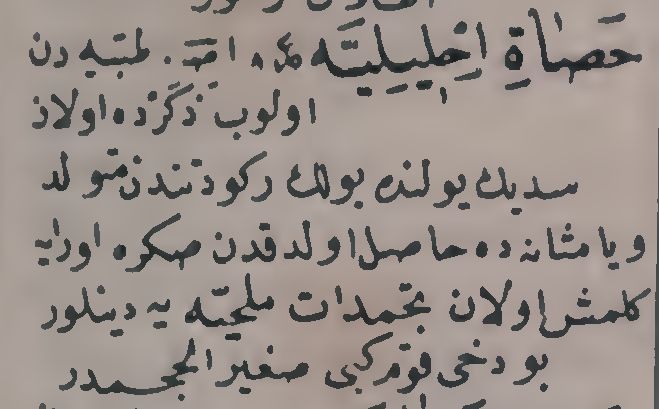 حَصَاةِ اِحْلِيلِيَّه عر. اص. طبّيه دن
اولوب ذكرده اولان
سديك يولنده بولك ركودتندن متولد
ويا مثانه ده حاصل اولدقدن صكره اورايه
كلمش اولان تجمدات ملحيّه يه دينلور
بو دخى قوم كبى صغير الحجمدر